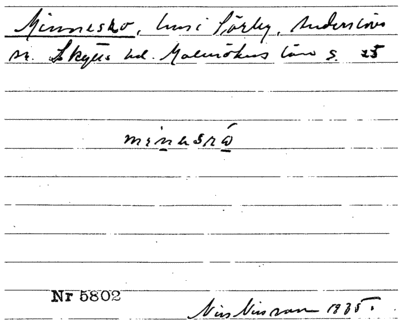 Minnesko, hus i Sörby, Anderslövs
sn. Skytts hd. Malmöhus län s. 25
minəskó
Nr 5802
Nils Nilsson 1935.